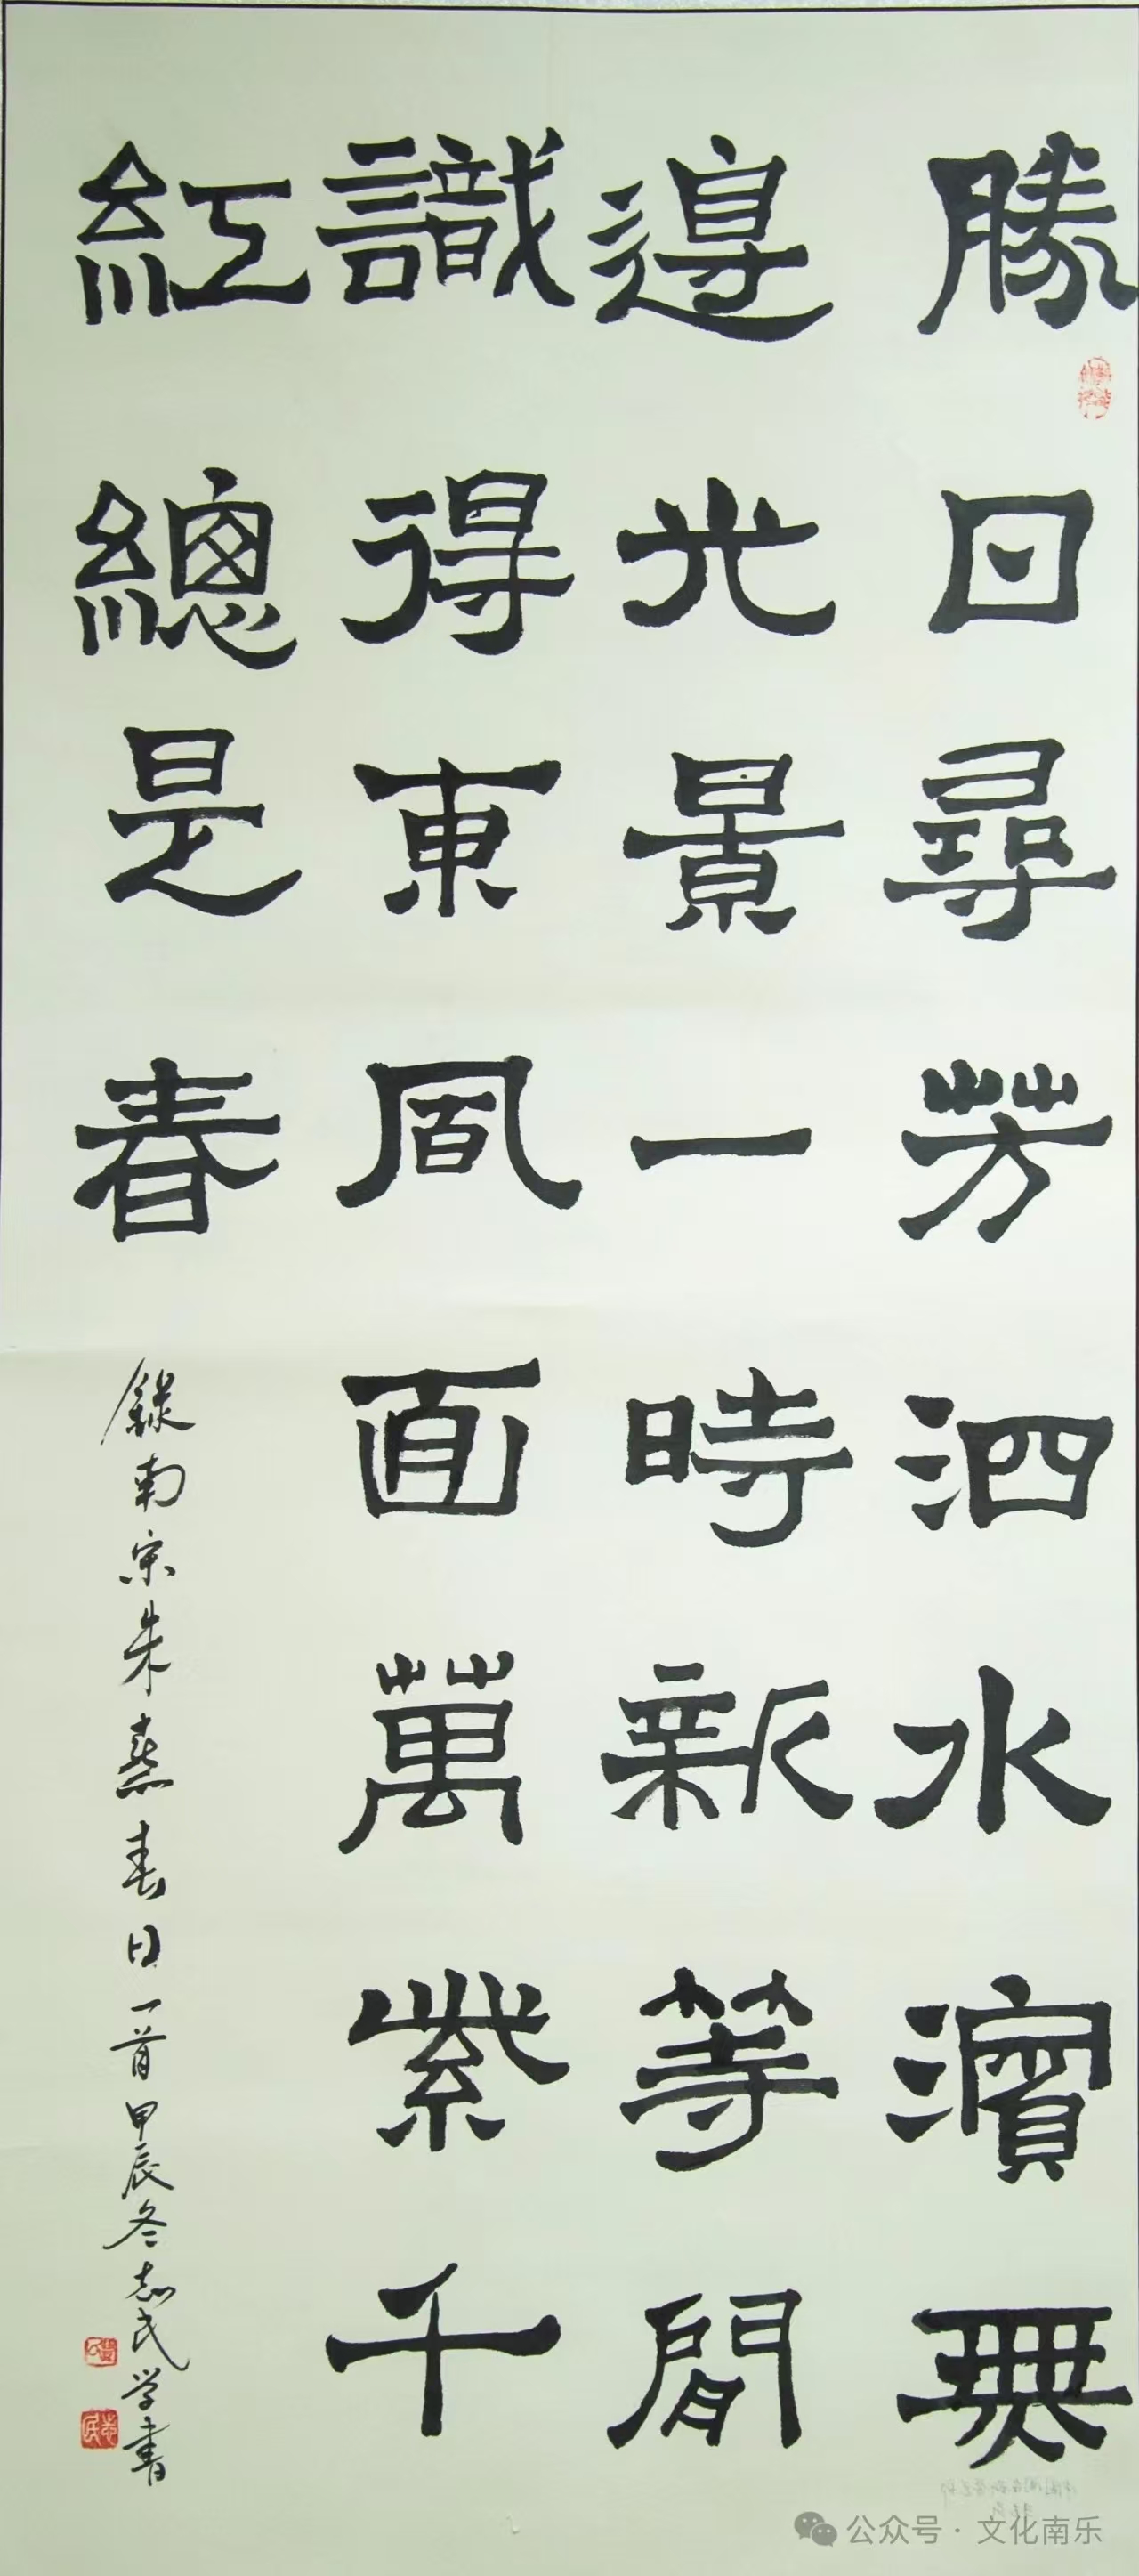 勝日尋芳泗水濱無
邊光景一時新等閒
識得東風面萬紫千
紅總是春
錄南宋朱熹春日一首甲辰冬志民学書
公众号·文化南乐